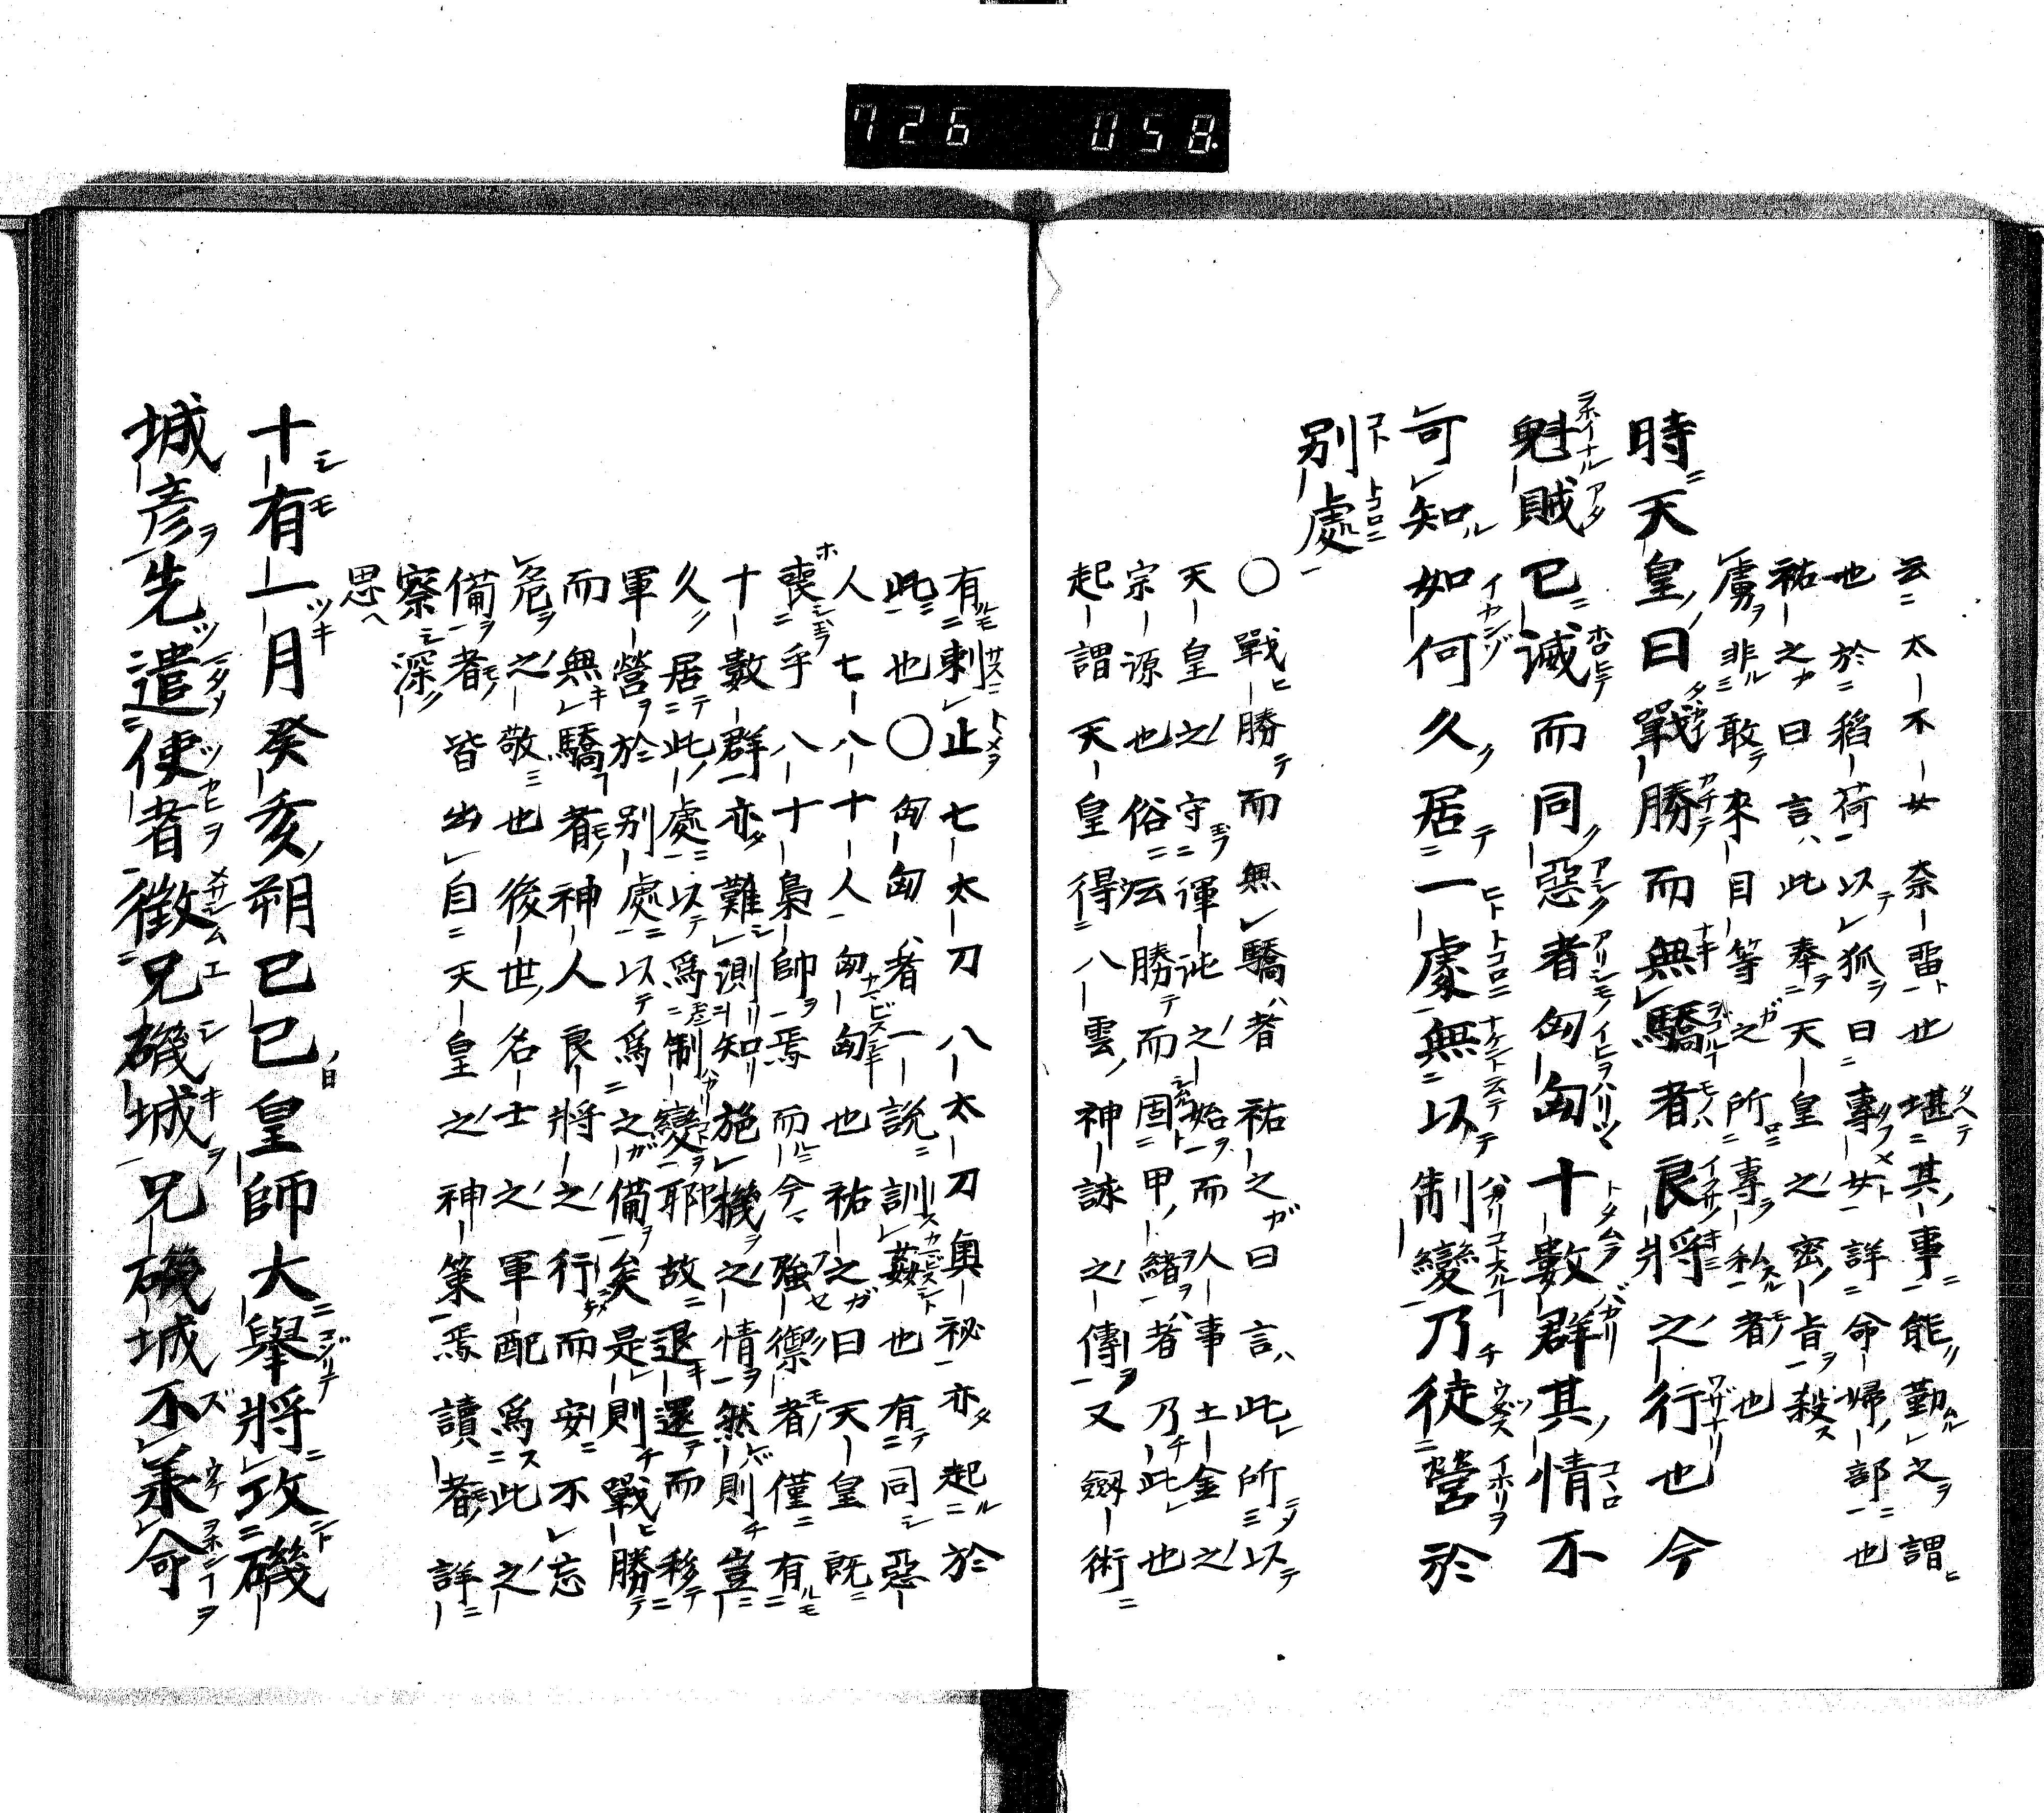 726 058
云太不女奈畱也堪其事能勤之謂
也於稻荷以狐曰專女詳命婦部也
祐之曰言此奉天皇之密旨殺
虜非敢來目等之所專私者也
時天皇曰戰勝而無驕者良將之行也今
魁賊已滅而同惡者匈匈十數群其情不
可知如何久居一處無以制變乃徙營於
別處
○戰勝而無驕者祐之曰言此所以
天皇之守運訛之始而人事土金之
宗源也俗云勝而固甲緒者乃此也
起謂天皇得八雲神詠之傳又劔術
有刺止七太刀八太刀奥祕亦起於
此也○匈匈者一說訓姦也有同惡
人七八十人匈匈也祐之曰天皇既
喪乎八十梟帥焉而今強禦者僅有
十數群亦難測知施機之情然則豈
久居此處以爲制變耶故退還而移
軍營於別處以爲之備矣是則戰勝
而無驕者神人良將之行而安不忘
危之敬也後世名士之軍配爲此之
備者皆出自天皇之神策焉讀者詳
察深思
十有一月癸亥朔己巳皇師大舉將攻磯
城彦先遣使者徵兄磯城兄磯城不承命